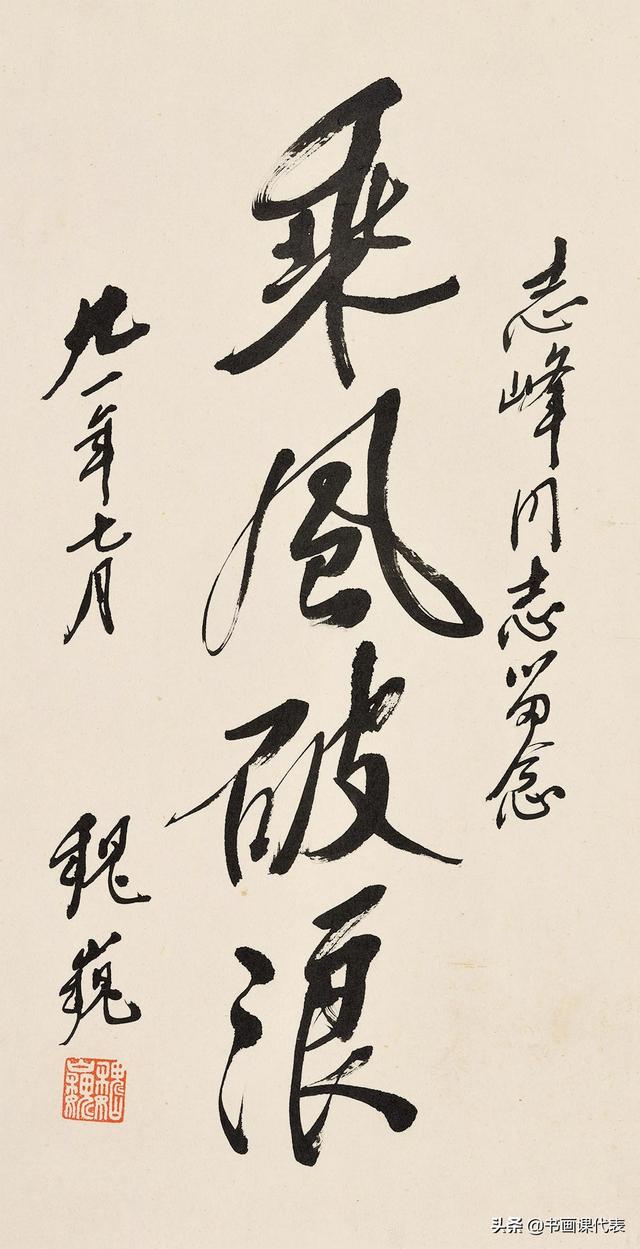 志峰同志留念
乘风破浪
九一年七月
魏巍
魏巍
头条 @书画课代表